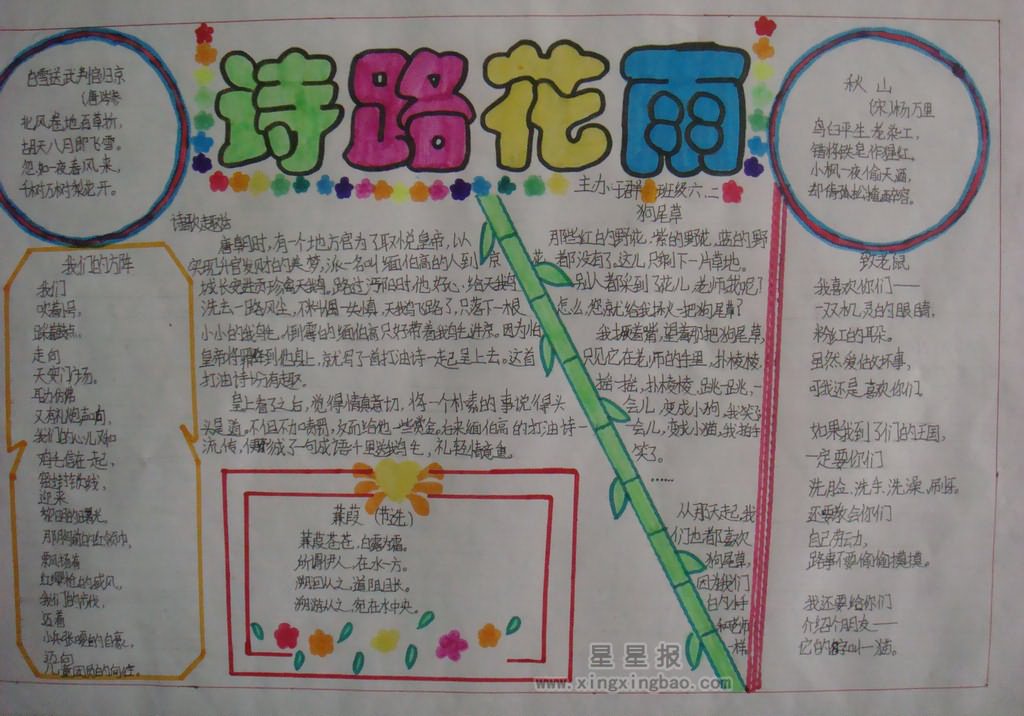 诗路花雨
白雪送武判官归京
(唐)岑参
北风卷地百草折,
胡天八月即飞雪。
忽如一夜春风来,
千树万树梨花开。
秋山
(宋)杨万里
乌臼平生老染工,
错将铁皂作猩红。
小枫一夜偷天酒,
却倩孤松掩醉容。
主办
班级六.二
诗歌趣谈
唐朝时,有个地方官为了取悦皇帝,以
实现升官发财的美梦,派一名叫缅伯高的人到京
城长安进贡珍禽天鹅。路过沔阳时,他好心,给天鹅
洗去一路风尘,不料偶一失慎,天鹅飞跑了,只落下一根
小小的鹅毛,倒霉的缅伯高只好带着鹅毛进京。因为怕
皇帝将罪到他身上,就写了首打油诗一起呈上去。这首
打油诗十分有趣。
皇上看了之后,觉得情真意切,将一个朴素的事说得头
头是道。不但不加责罚,反而给他一些赏金。后来缅伯高的打油诗一
流传,便形成了一句成语千里送鹅毛,礼轻情意重。
狗尾草
那些红的野花,紫的野花,蓝的野
花都没有了,这儿只剩下一片草地。
别人都采到了花儿,老师,我呢?
怎么,您就给我拔一把狗尾草?
我撅着嘴,望着那把狗尾草,
只见它在老师的手里,扑棱棱,
摇一摇,扑棱棱,跳一跳,一
会儿,变成小狗,我笑了
一会儿,变成小猫,我拍手
笑了。
……
从那天起,我
们也都喜欢
狗尾草,
因为我们
白的小手
和老师
一样
我们的方阵
我们
吹着号,
踩着鼓点,
走向
天安门广场。
又有礼炮声响,
我们的心儿和
迎来
那胸前的红领巾,
飘扬着
我们的前伐,
迈着
迈向
蒹葭(节选)
蒹葭苍苍,白露为霜。
所谓伊人,在水一方。
溯回从之,道阻且长。
溯游从之,宛在水中央。
致老鼠
我喜欢你们——
一双机灵的眼睛,
粉红的耳朵。
虽然爱做坏事,
可我还是喜欢你们。
如果我到了们的王国,
一定要你们
洗脸、洗手、洗澡、刷牙。
还要教会你们
自己劳动,
路事不要偷偷摸摸。
我还要给你们
介绍个朋友——
它的名字叫一猫。
星星报
www.xingxingbao.com